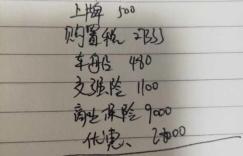 上牌 500
购置税
车船 480
交强险 1100
商业保险 9000
优惠